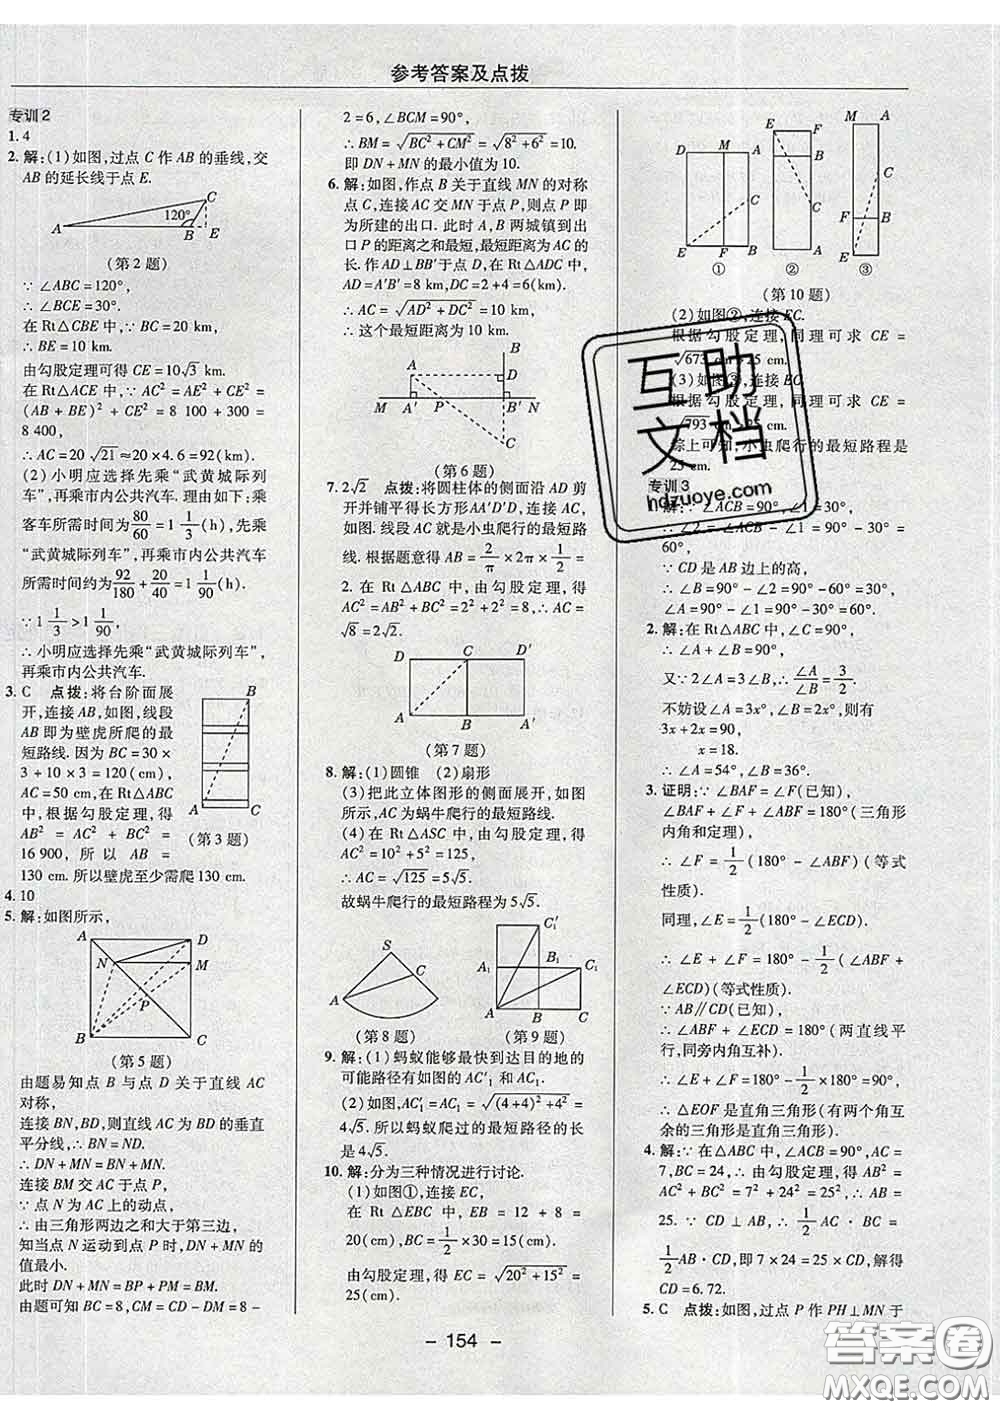 参考答案及点拨
专训2
1.4
2.解:(1)如图,过点C作AB的垂线,交
AB的延长线于点E.
A 120° B E C
(第2题)
∵∠ABC=120°,
∴∠BCE=30°.
在Rt△CBE中,∵BC=20 km,
∴BE=10 km.
由勾股定理可得CE=10√3 km.
在Rt△ACE中,∵AC²=AE²+CE²=
(AB+BE)²+CE²=8 100+300=
8 400,
∴AC=20√21≈20×4.6=92(km).
(2)小明应选择先乘“武黄城际列
车”,再乘市内公共汽车.理由如下:乘
客车所需时间为80/60=1 1/3(h),先乘
“武黄城际列车”,再乘市内公共汽车
所需时间约为92/180+20/40=1 1/90(h).
∵1 1/3>1 1/90,
∴小明应选择先乘“武黄城际列车”,
再乘市内公共汽车.
3.C 点拨:将台阶面展
开,连接AB,如图,线段
AB即为壁虎所爬的最
短路线.因为BC=30×
3+10×3=120(cm),
AC=50 cm,在Rt△ABC
中,根据勾股定理,得
AB²=AC²+BC²=
16 900,所以AB=
130 cm.所以壁虎至少需爬130 cm.
B A C
(第3题)
4.10
5.解:如图所示,
A D N M P B C
(第5题)
由题易知点B与点D关于直线AC
对称,
连接BN,BD,则直线AC为BD的垂直
平分线,∴BN=ND.
∴DN+MN=BN+MN.
连接BM交AC于点P,
∵点N为AC上的动点,
∴由三角形两边之和大于第三边,
知当点N运动到点P时,DN+MN的
值最小.
此时DN+MN=BP+PM=BM.
由题可知BC=8,CM=CD-DM=8-
2=6,∠BCM=90°,
∴BM=√(BC²+CM²)=√(8²+6²)=10.
即DN+MN的最小值为10.
6.解:如图,作点B关于直线MN的对称
点C,连接AC交MN于点P,则点P即
为所建的出口.此时A,B两城镇到出
口P的距离之和最短,最短距离为AC的
长.作AD⊥BB′于点D,在Rt△ADC中,
AD=A′B′=8 km,DC=2+4=6(km).
∴AC=√(AD²+DC²)=10 km,
∴这个最短距离为10 km.
B A D M A′ P B′ N C
(第6题)
7.2√2 点拨:将圆柱体的侧面沿AD剪
开并铺平得长方形AA′D′D,连接AC,
如图.线段AC就是小虫爬行的最短路
线.根据题意得AB=2/π×2π×1/2=
2.在Rt△ABC中,由勾股定理,得
AC²=AB²+BC²=2²+2²=8,∴AC=
√8=2√2.
D C D′ A B A′
(第7题)
8.解:(1)圆锥 (2)扇形
(3)把此立体图形的侧面展开,如图
所示,AC为蜗牛爬行的最短路线.
(4)在Rt△ASC中,由勾股定理,得
AC²=10²+5²=125,
∴AC=√125=5√5.
故蜗牛爬行的最短路程为5√5.
S C A
(第8题)
C₁′ B₁ A₁ C₁ A B C
(第9题)
9.解:(1)蚂蚁能够最快到达目的地的
可能路径有如图的AC′₁和AC₁.
(2)如图,AC′₁=AC₁=√((4+4)²+4²)=
4√5.所以蚂蚁爬过的最短路径的长
是4√5.
10.解:分为三种情况进行讨论.
(1)如图①,连接EC,
在Rt△EBC中,EB=12+8=
20(cm),BC=1/2×30=15(cm).
由勾股定理,得EC=√(20²+15²)=
25(cm).
D M A C E F B ①
E F B C A ②
M A C F B E ③
(第10题)
(2)如图②,连接EC.
根据勾股定理,同理可求CE=
√673 cm>25 cm.
(3)如图③,连接EC.
根据勾股定理,同理可求CE=
√793 cm>25 cm.
综上可知,小虫爬行的最短路程是
25 cm.
专训3
解:∵∠ACB=90°,∠1=30°,
∴∠2=∠ACB-∠1=90°-30°=
60°.
∵CD是AB边上的高,
∴∠B=90°-∠2=90°-60°=30°,
∠A=90°-∠1=90°-30°=60°.
2.解:在Rt△ABC中,∠C=90°,
又∵2∠A=3∠B,∴∠A/∠B=3/2.
不妨设∠A=3x°,∠B=2x°,则有
3x+2x=90,
x=18.
∴∠A=54°,∠B=36°.
3.证明:∵∠BAF=∠F(已知),
∠BAF+∠F+∠ABF=180°(三角形
内角和定理),
∴∠F=1/2(180°-∠ABF)(等式
性质).
同理,∠E=1/2(180°-∠ECD).
∴∠E+∠F=180°-1/2(∠ABF+
∠ECD)(等式性质).
∵AB∥CD(已知),
∴∠ABF+∠ECD=180°(两直线平
行,同旁内角互补).
∴∠E+∠F=180°-1/2×180°=90°,
∴△EOF是直角三角形(有两个角互
余的三角形是直角三角形).
4.解:∵在△ABC中,∠ACB=90°,AC=
7,BC=24,∴由勾股定理,得AB²=
AC²+BC²=7²+24²=25²,∴AB=
25.∵CD⊥AB,∴1/2AC·BC=
1/2AB·CD,即7×24=25×CD,解得
CD=6.72.
5.C 点拨:如图,过点P作PH⊥MN于
- 154 -
互助文档
hdzuoye.com
答案圈
MXQE.COM